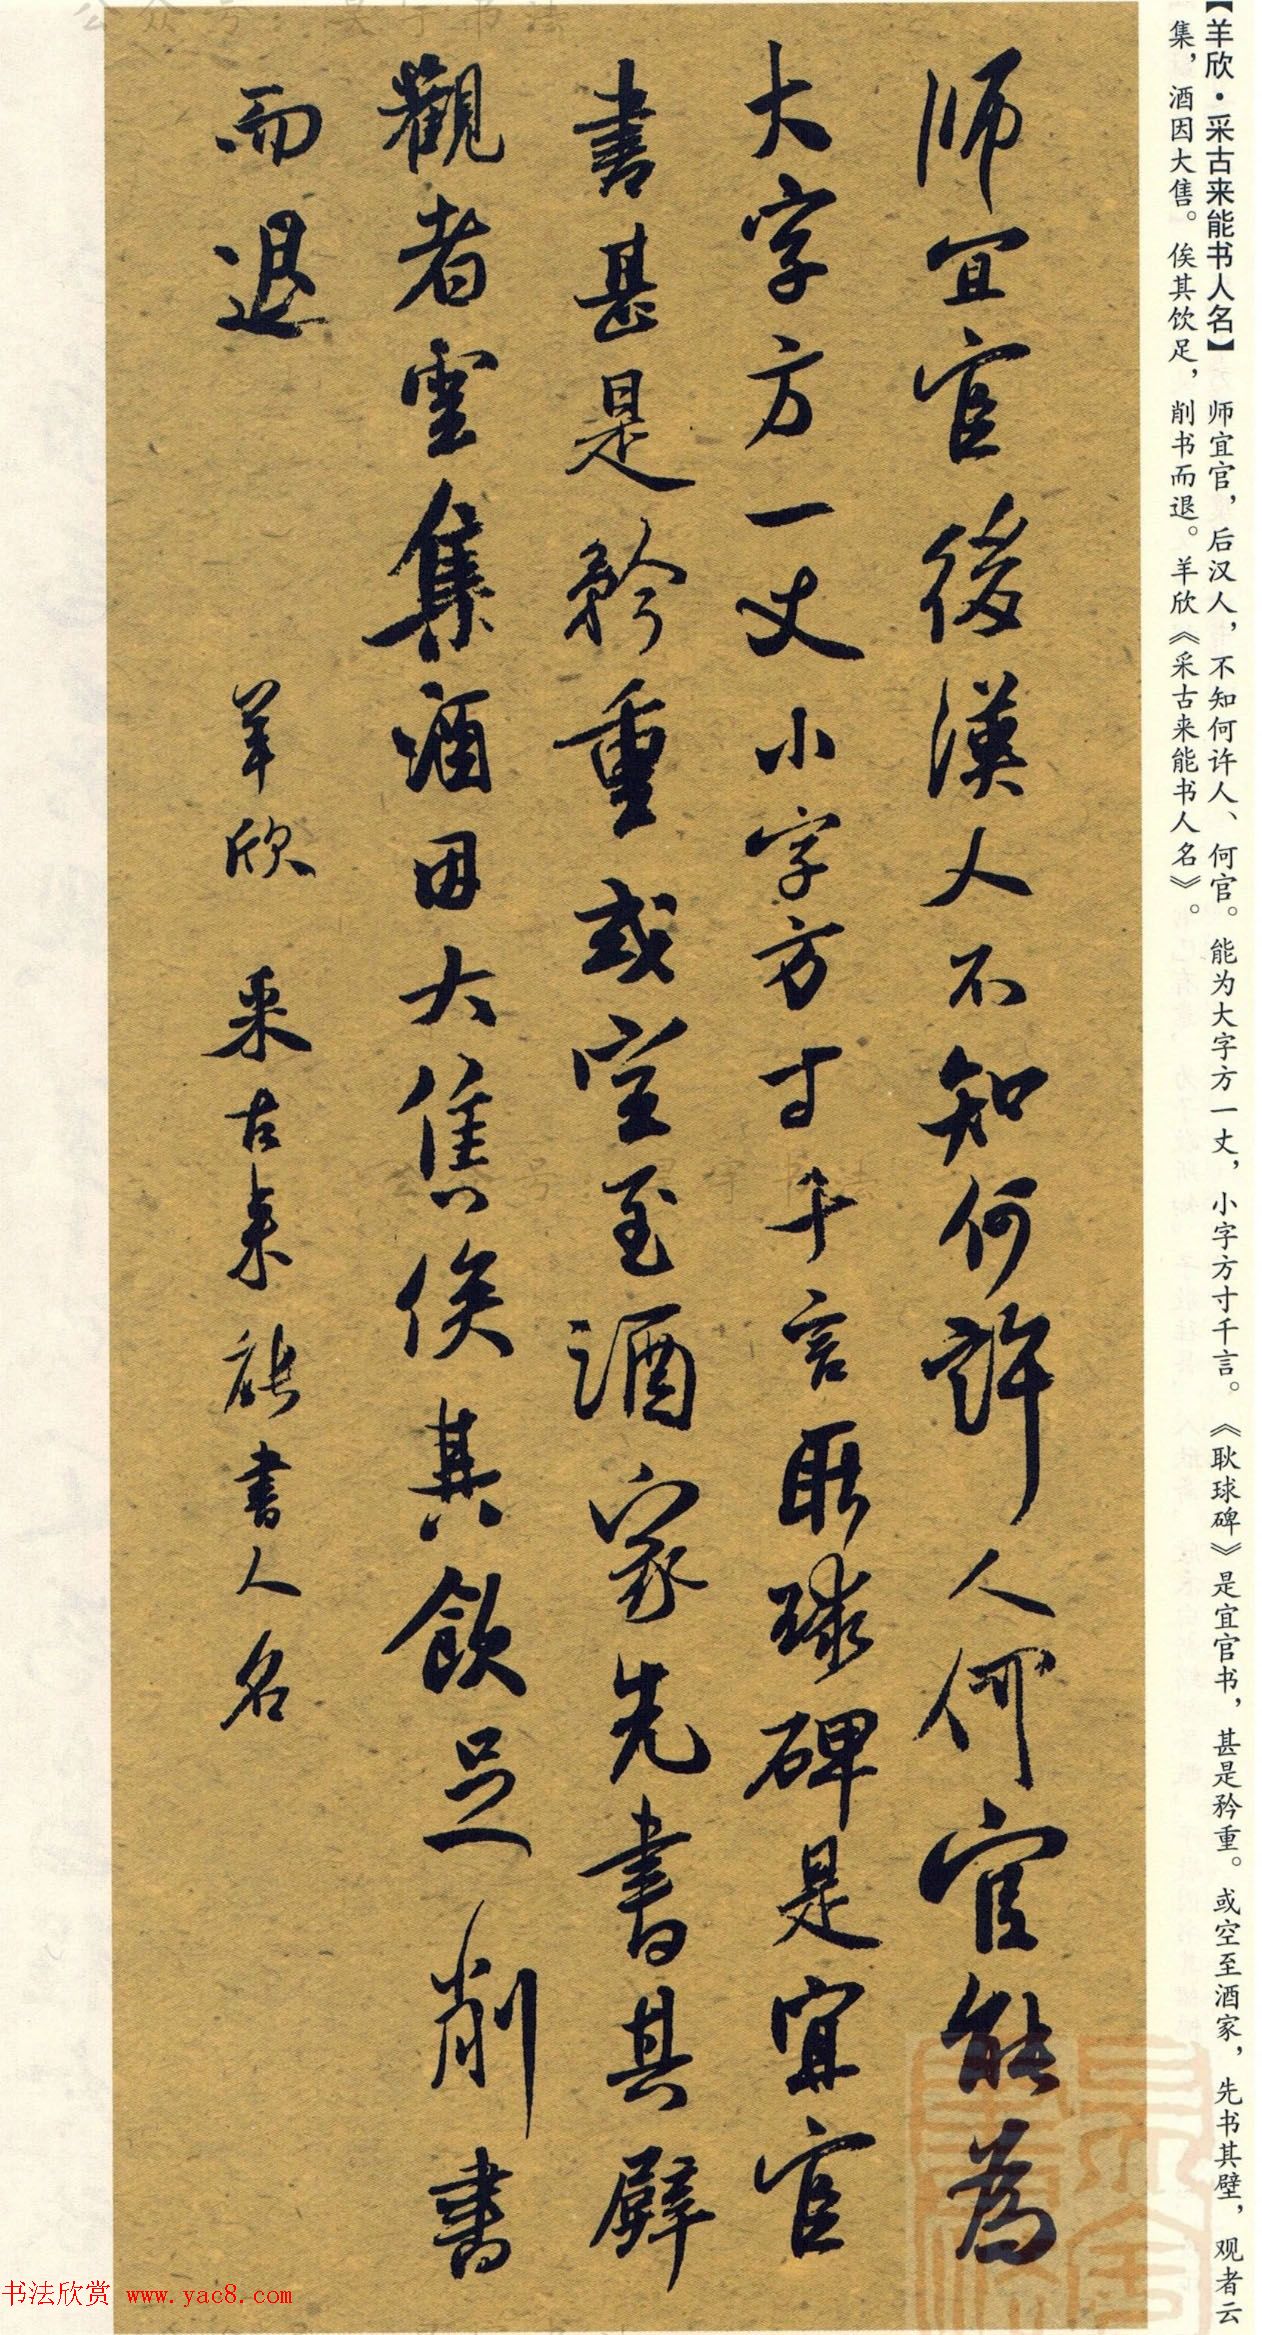 【羊欣·采古来能书人名】 师宜官，后汉人，不知何许人、何官。能为大字方一丈，小字方寸千言。《耿球碑》是宜官书，甚是矜重。或空至酒家，先书其壁，观者云
集，酒因大售。俟其饮足，削书而退。羊欣《采古来能书人名》。
师宜官後漢人不知何許人何官能為
大字方一丈小字方寸千言耿球碑是宜官
書甚是矜重或空至酒家先書其壁
觀者雲集酒因大售俟其飲足削書
而退
羊欣 采古来能書人名
书法欣赏 www.yac8.com